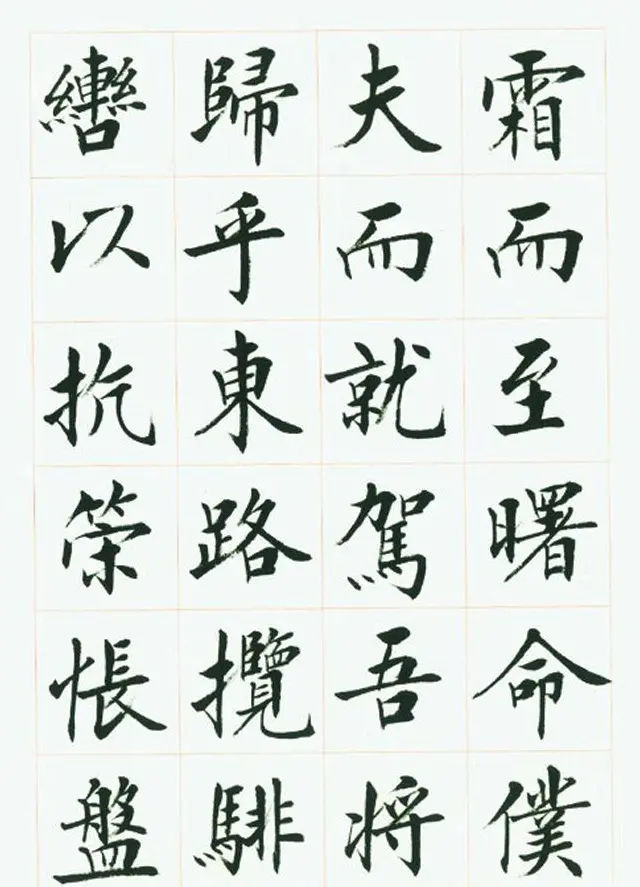 霜而至曙命僕
夫而就駕吾将
歸乎東路攬騑
轡以抗策悵盤